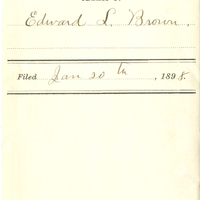 Edward L. Brown.
Filed Jan 20th, 1898.